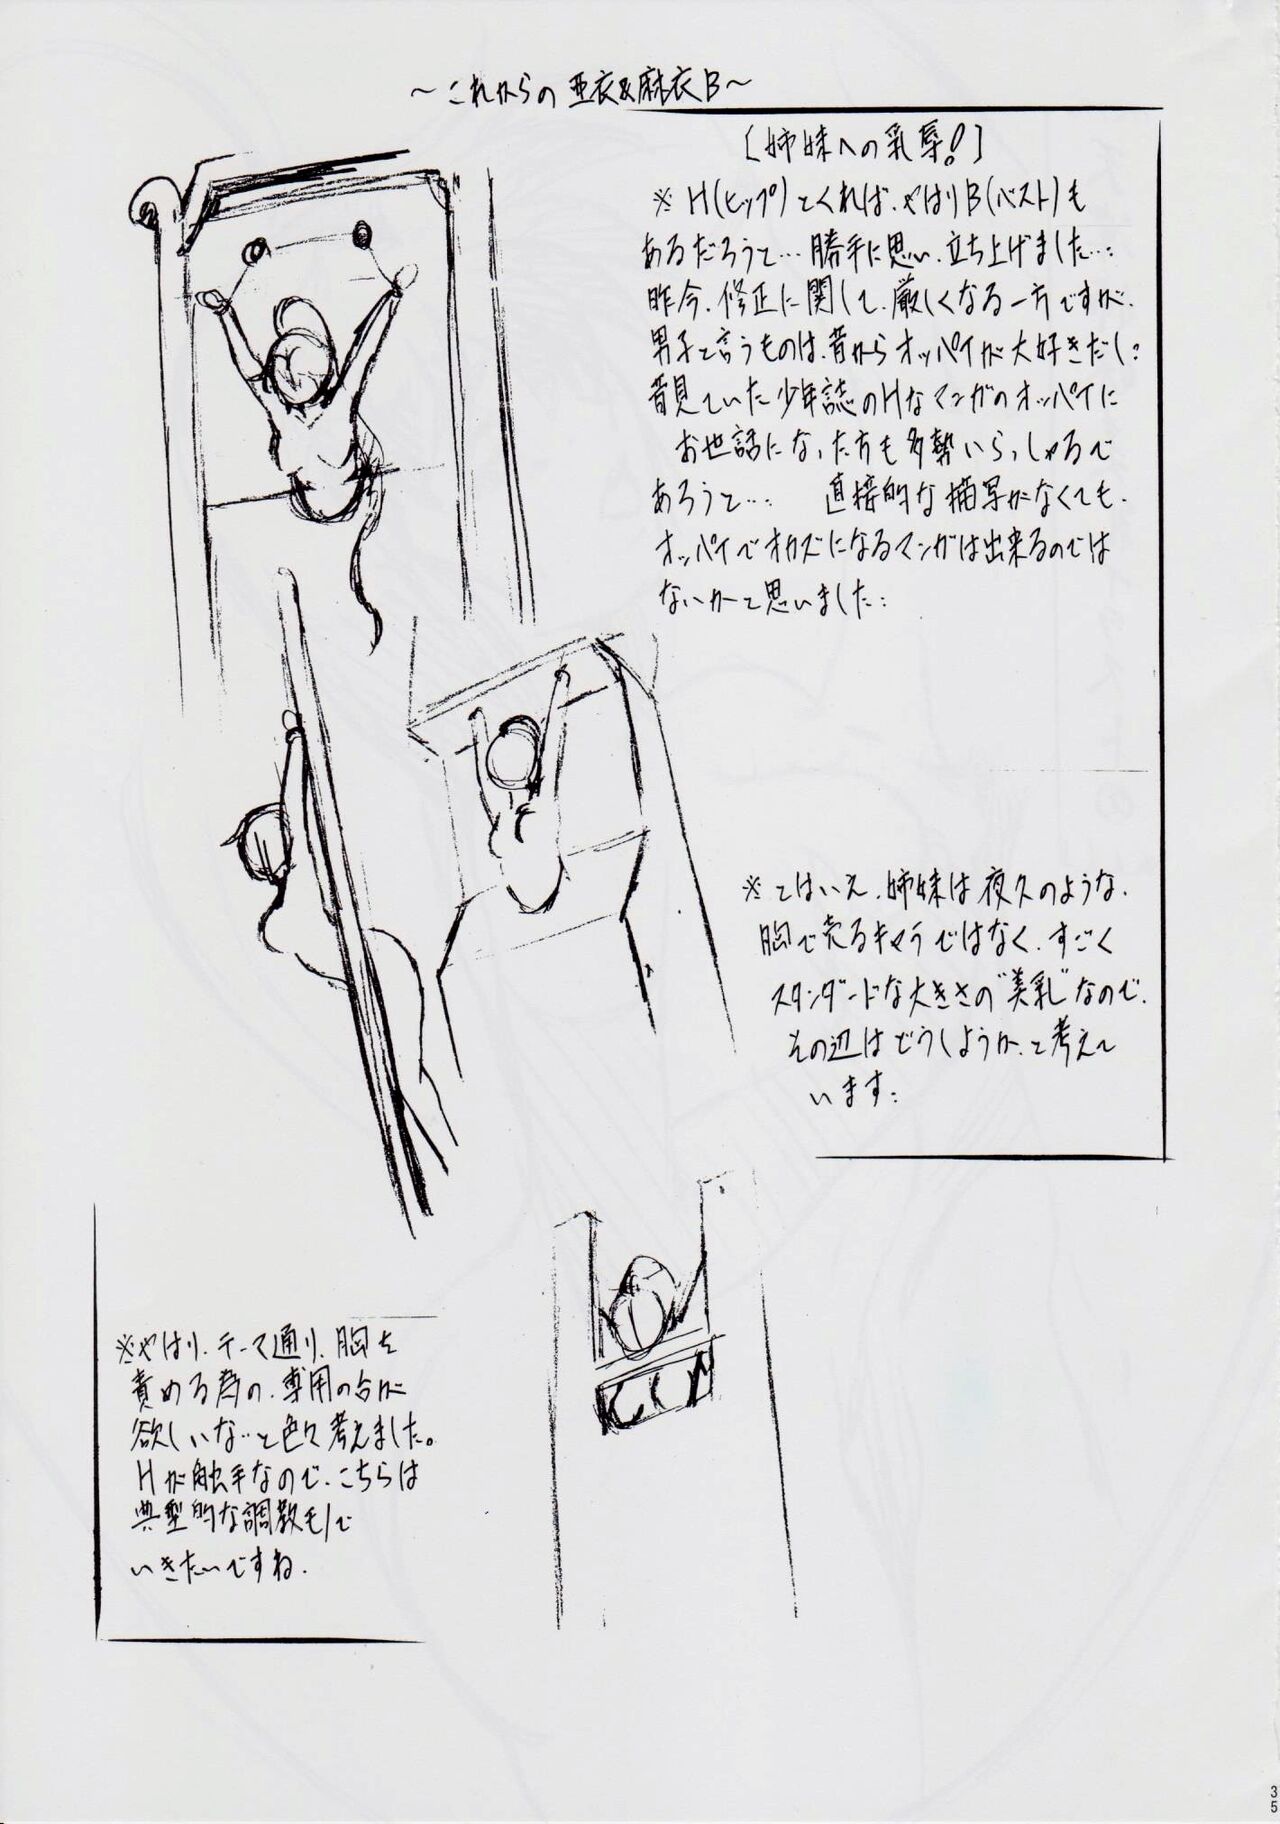 ～これからの亜衣&麻衣B～
［姉妹への乳辱!］
※H(ヒップ)とくれば、やはりB(バスト)も
あるだろうと…勝手に思い、立ち上げました…:
昨今、修正に関して、厳しくなる一方ですが、
男子と言うものは、昔からオッパイが大好きだし:
昔見ていた少年誌のHなマンガのオッパイに
お世話になった方も多勢いらっしゃるで
あろうと…　直接的な描写がなくても、
オッパイでオカズになるマンガは出来るのでは
ないかと思いました:
※とはいえ、姉妹は夜久のような、
胸で売るキャラではなく、すごく
スタンダードな大きさの"美乳"なので、
その辺はどうしようか、と考えて
います:
※やはり、テーマ通り、胸を
責める為の、専用の台が
欲しいな…と色々考えました。
Hが触手なので、こちらは
典型的な調教モノで
いきたいですね.
35